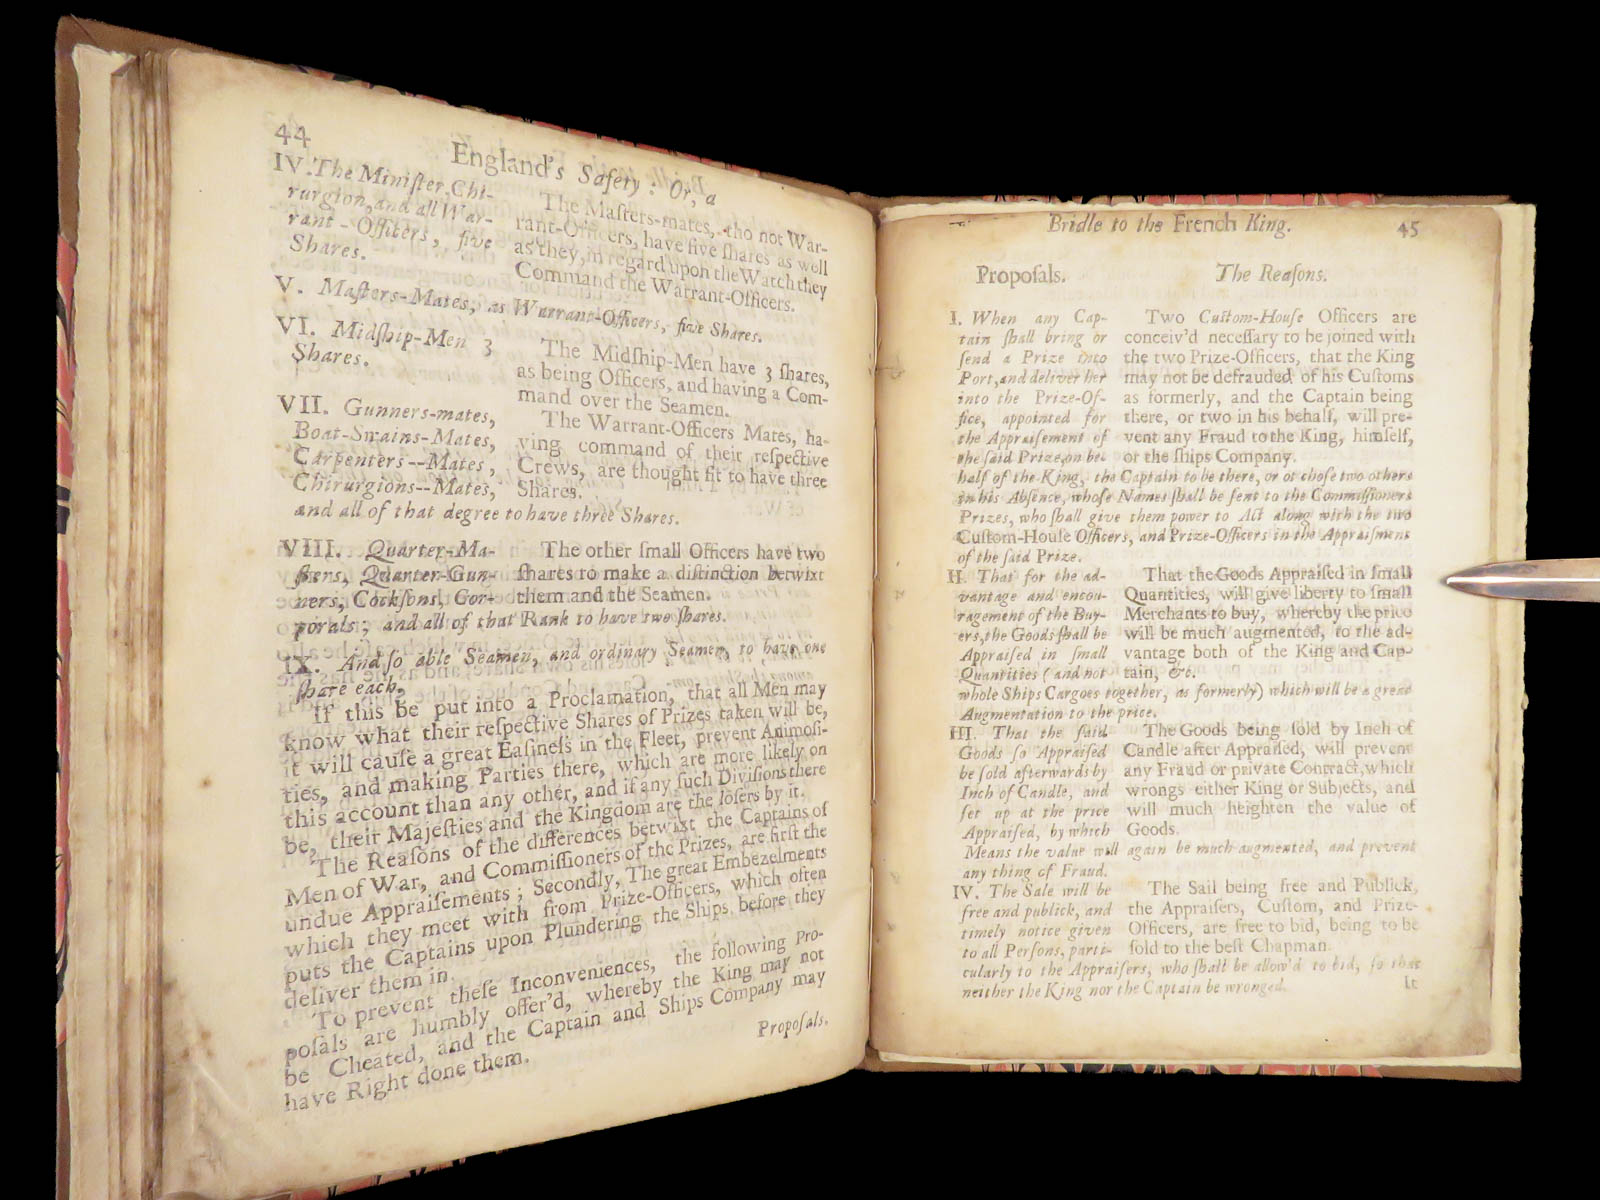 44
England's Safety: Or, a
IV. The Miniſter, Chi-
rurgion, and all War-
rant-Officers, five
Shares.
The Maſters-mates, tho not War-
rant-Officers, have five ſhares as well
as they, in regard upon the Watch they
Command the Warrant-Officers.
V. Maſters-Mates, as Warrant-Officers, five Shares.
VI. Midſhip-Men 3
Shares.
The Midſhip-Men have 3 ſhares,
as being Officers, and having a Com-
mand over the Seamen.
VII. Gunners-mates,
Boat-Swains-Mates,
Carpenters--Mates,
Chirurgions--Mates,
The Warrant-Officers Mates, ha-
ving command of their reſpective
Crews, are thought fit to have three
Shares.
and all of that degree to have three Shares.
VIII. Quarter-Ma-
ſters, Quarter-Gun-
ners, Cockſons, Cor-
The other ſmall Officers have two
ſhares to make a diſtinction betwixt
them and the Seamen.
porals; and all of that Rank to have two ſhares.
IX. And ſo able Seamen, and ordinary Seamen, to have one
ſhare each.
If this be put into a Proclamation, that all Men may
know what their reſpective Shares of Prizes taken will be,
it will cauſe a great Eaſineſs in the Fleet, prevent Animoſi-
ties, and making Parties there, which are more likely on
this account than any other, and if any ſuch Diviſions there
be, their Majeſties and the Kingdom are the loſers by it.
The Reaſons of the differences betwixt the Captains of
Men of War, and Commiſſioners of the Prizes, are firſt the
undue Appraiſements; Secondly, The great Embezelments
which they meet with from Prize-Officers, which often
puts the Captains upon Plundering the Ships before they
deliver them in.
To prevent theſe Inconveniences, the following Pro-
poſals are humbly offer'd, whereby the King may not
be Cheated, and the Captain and Ships Company may
have Right done them.
Propoſals.
Bridle to the French King.
45
Propoſals.
The Reaſons.
I. When any Cap-
tain ſhall bring or
ſend a Prize into
Port, and deliver her
into the Prize-Of-
fice, appointed for
the Appraiſement of
the ſaid Prize, on be-
Two Cuſtom-Houſe Officers are
conceiv'd neceſſary to be joined with
the two Prize-Officers, that the King
may not be defrauded of his Cuſtoms
as formerly, and the Captain being
there, or two in his behalf, will pre-
vent any Fraud to the King, himſelf,
or the ſhips Company.
half of the King, the Captain to be there, or ot choſe two others
in his Abſence, whoſe Names ſhall be ſent to the Commiſſioners
Prizes, who ſhall give them power to Act along with the two
Cuſtom-Houſe Officers, and Prize-Officers in the Appraiſment
of the ſaid Prize.
II. That for the ad-
vantage and encou-
ragement of the Buy-
ers, the Goods ſhall be
Appraiſed in ſmall
Quantities (and not
That the Goods Appraiſed in ſmall
Quantities, will give liberty to ſmall
Merchants to buy, whereby the price
will be much augmented, to the ad-
vantage both of the King and Cap-
tain, &c.
whole Ships Cargoes together, as formerly) which will be a great
Augmentation to the price.
III. That the ſaid
Goods ſo Appraiſed
be ſold afterwards by
Inch of Candle, and
ſet up at the price
Appraiſed, by which
The Goods being ſold by Inch of
Candle after Appraiſed, will prevent
any Fraud or private Contract, which
wrongs either King or Subjects, and
will much heighten the value of
Goods.
Means the value will again be much augmented, and prevent
any thing of Fraud.
IV. The Sale will be
free and publick, and
timely notice given
to all Perſons, parti-
The Sail being free and Publick,
the Appraiſers, Cuſtom, and Prize-
Officers, are free to bid, being to be
ſold to the beſt Chapman.
cularly to the Appraiſers, who ſhall be allow'd to bid, ſo that
neither the King nor the Captain be wronged.
It